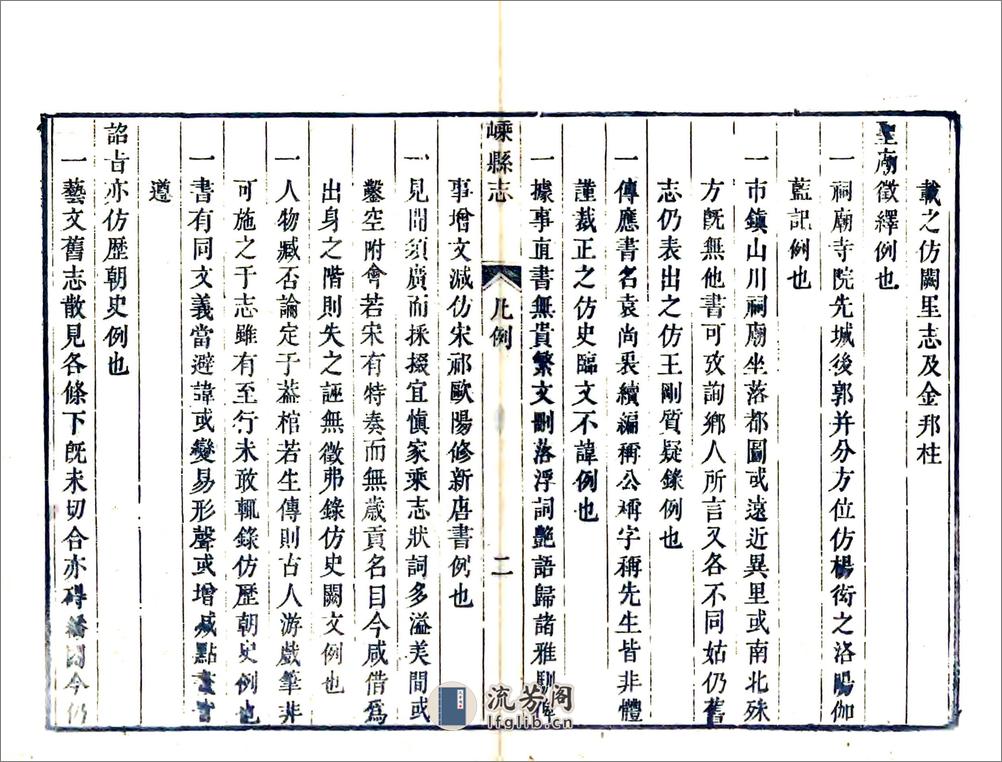 載之仿闕里志及金邦柱
聖廟徵繹例也
一祠廟寺院先城後郭并分方位仿楊衒之洛陽伽
藍記例也
一市鎮山川祠廟坐落都圖或遠近異里或南北殊
方旣無他書可攷詢鄉人所言又各不同姑仍舊
志仍表出之仿王剛質疑錄例也
一傳應書名袁尚衷續編稱公稱字稱先生皆非體
謹裁正之仿史臨文不諱例也
一據事直書無貴繁文刪落浮詞艷語歸諸雅馴
嵊縣志
凡例
二
事增文減仿宋祁歐陽修新唐書例也
一見聞須廣而採掇宜愼家乘志狀詞多溢美間或
鑿空附會若宋有特奏而無歲貢名目今咸借爲
出身之階則失之誣無徵弗錄仿史闕文例也
一人物臧否論定于蓋棺若生傳則古人游戲筆非
可施之于志雖有至行未敢輒錄仿歷朝史例也
一書有同文義當避諱或變易形聲或增減點畫
遵
詔旨亦仿歷朝史例也
一藝文舊志散見各條下旣未切合亦碍繙閱今仍
流芳阁
lfglib.cn